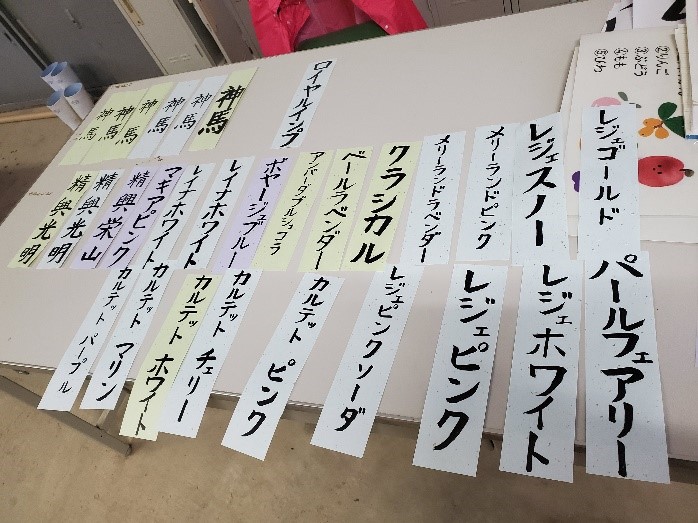 ②りんご
③ぶどう
④もも
⑤びわ
ロイヤルインプ
神馬
神馬
神馬
神馬
神馬
神馬
神馬
レジェゴールド
レジェスノー
メリーランドピンク
メリーランドラベンダー
クラシカル
ベールラベンダー
アンバーダブルショコラ
ボヤージュブルー
レイナホワイト
レイナホワイト
マギアピンク
精興栄山
精興栄山
精興光明
精興光明
パールフェアリー
レジェホワイト
レジェピンク
レジェピンクソーダ
カルテット ピンク
カルテット チェリー
カルテット ホワイト
カルテット マリン
カルテット パープル